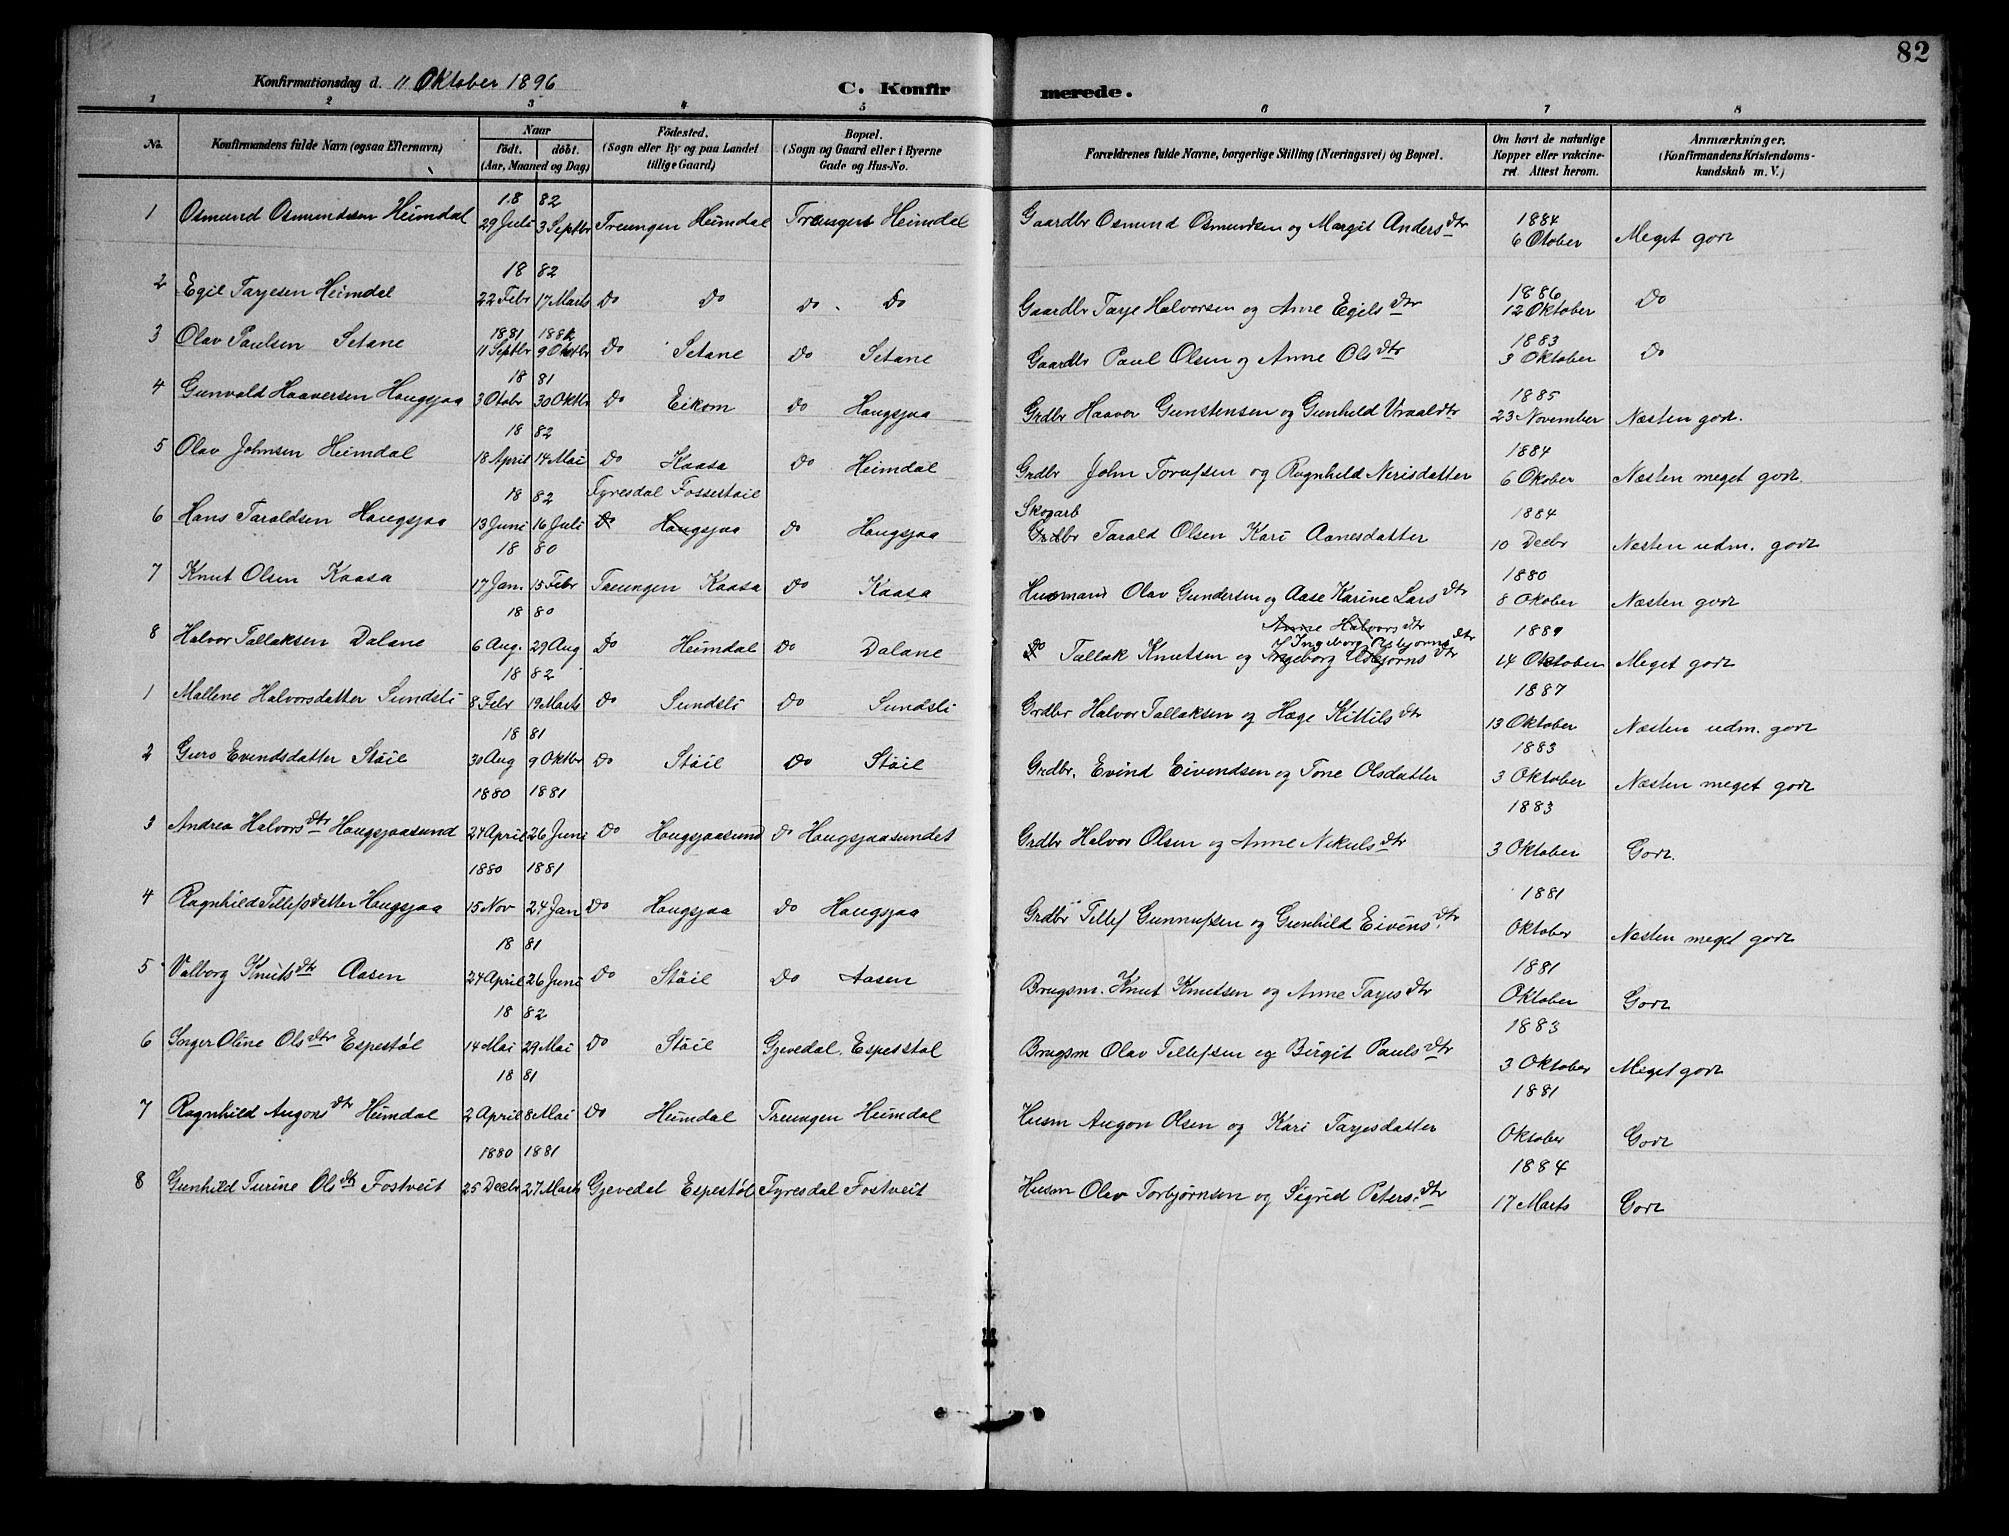 82
Konfirmationsdag d. 11 Oktober 1896
C. Konfirmerede.
1 2 3 4 5 6 7 8
No. Konfirmandens fulde Navn (ogsaa Efternavn) Naar født. døbt. (Aar, Maaned og Dag) Fødested. (Sogn eller By og paa Landet tillige Gaard) Bopæl. (Sogn og Gaard eller i Byerne Gade og Hus-No. Forældrenes fulde Navne, borgerlige Stilling (Næringsvei) og Bopæl. Om havt de naturlige Kopper eller vakcineret. Attest herom. Anmærkninger. (Konfirmandens Kristendomskundskab m. V.)
18 82 1884
1 Osmund Osmundsen Heimdal 29 Juli 3 Septbr Treungen Heimdal Treungen Heimdal Gaardbr Osmund Osmundsen og Margit Andersdtr 6 Otober Meget godt
18 82 1886
2 Egil Tarjesen Heimdal 22 Febr 17 Marts Do Do Do Do Gaardbr Tarje Halvorsen og Anne Egilsdtr 12 Oktober Do
1881 1883
3 Olav Paulsen Setane 11 Septbr 9 Do Setane Do Setane Gaardbr Paul Olsen og Anne Olsdtr 3 Oktober Do
18 81 1885
4 Gunvald Haaversen Haugsjaa 3 Otobr 30 Oktbr Do Eikom Do Haugsjaa Grdbr Haaver Gunstensen og Gunhild Vraaldtr 23 November Næsten godt.
18 82 1884
5 Olav Johnsen Heimdal 18 April 14 Mai Do Kaasa Do Heimdal Grdbr John Torufsen og Ragnhild Nerisdatter 6 Okober Næsten meget godt.
18 82 Fyresdal Fosserstøil Skogarb 1884
6 Hans Taraldsen Haugsjaa 13 Juni 16 Juli Do Haugsjaa Do Haugsjaa Grdbr Tarald Olsen Kari Aanesdatter 10 Decbr Næsten udm. godt
18 80 1880
7 Knut Olsen Kaasa 17 Jan. 15 Febr Treungen Kaasa Do Kaasa Husmand Olav Gundersen og Aase Karine Larsdtr 8 Okober Næsten godt
18 80 Anne Halvorsdtr 1889
H Ingeborg Asbjørnsdtr
8 Halvor Tallaksen Dalane 6 Aug. 29 Aug Do Heimdal Do Dalane Do Tallak Knutsen og Ingeborg 14 Oktober Meget godt
18 82 1887
1 Mallene Halvorsdatter Sundsli 8 Febr 19 Marts Do Sundsli Do Sundsli Grdbr Halvor Tallaksen og Hæge Kittilsdtr 13 Oktober Næsten udm. godt
18 81 1883
2 Guro Evendsdatter Støil 30 Aug 9 Oktbr Do Støil Do Støil Grdbr. Evind Eivendsen og Tone Olsdatter 3 Oktober Næsten meget godt
1880 1881 1883
3 Andrea Halvorsdtr Haugsjaasund 24 April 26 Juni Do Haugsjaasund Do Haugsjaasundet Grdbr Halvor Olsen og Anne Nikulsdtr 3 Oktober Godt.
1880 1881 1881
4 Ragnhild Tellefsdatter Haugsjaa 15 Nov 24 Jan Do Haugsjaa Do Haugsjaa Grdbr Tellef Gunnufsen og Gunhild Eivinsdtr Oktober Næsten meget godt
18 81 1881
5 Valborg Knutsdtr Aasen 24 April 26 Juni Do Støil Do Aasen Brugsm. Knut Knutsen og Anne Tarjesdtr Oktober Godt
18 82 1883
6 Inger Oline Olsdtr Espestøl 14 Mai 29 Mai Do Støil Gjevedal. Espesstøl Brugsm Olav Tellefsen og Birgit Paulsdtr 3 Oktober Meget godt
18 81 1881
7 Ragnhild Augonsdtr Heimdal 2 April 8 Mai Do Heimdal Treungen Heimdal Husm Augon Olsen og Kari Tarjesdatter Oktober Godt
1880 1881 1884
8 Gunhild Turine Olsdtr Fostveit 25 Decbr 27 Marts Gjevedal Espestøl Fyresdal Fostveit Husm Olav Torbjørnsen og Sigrid Petersdtr 17 Marts Godt